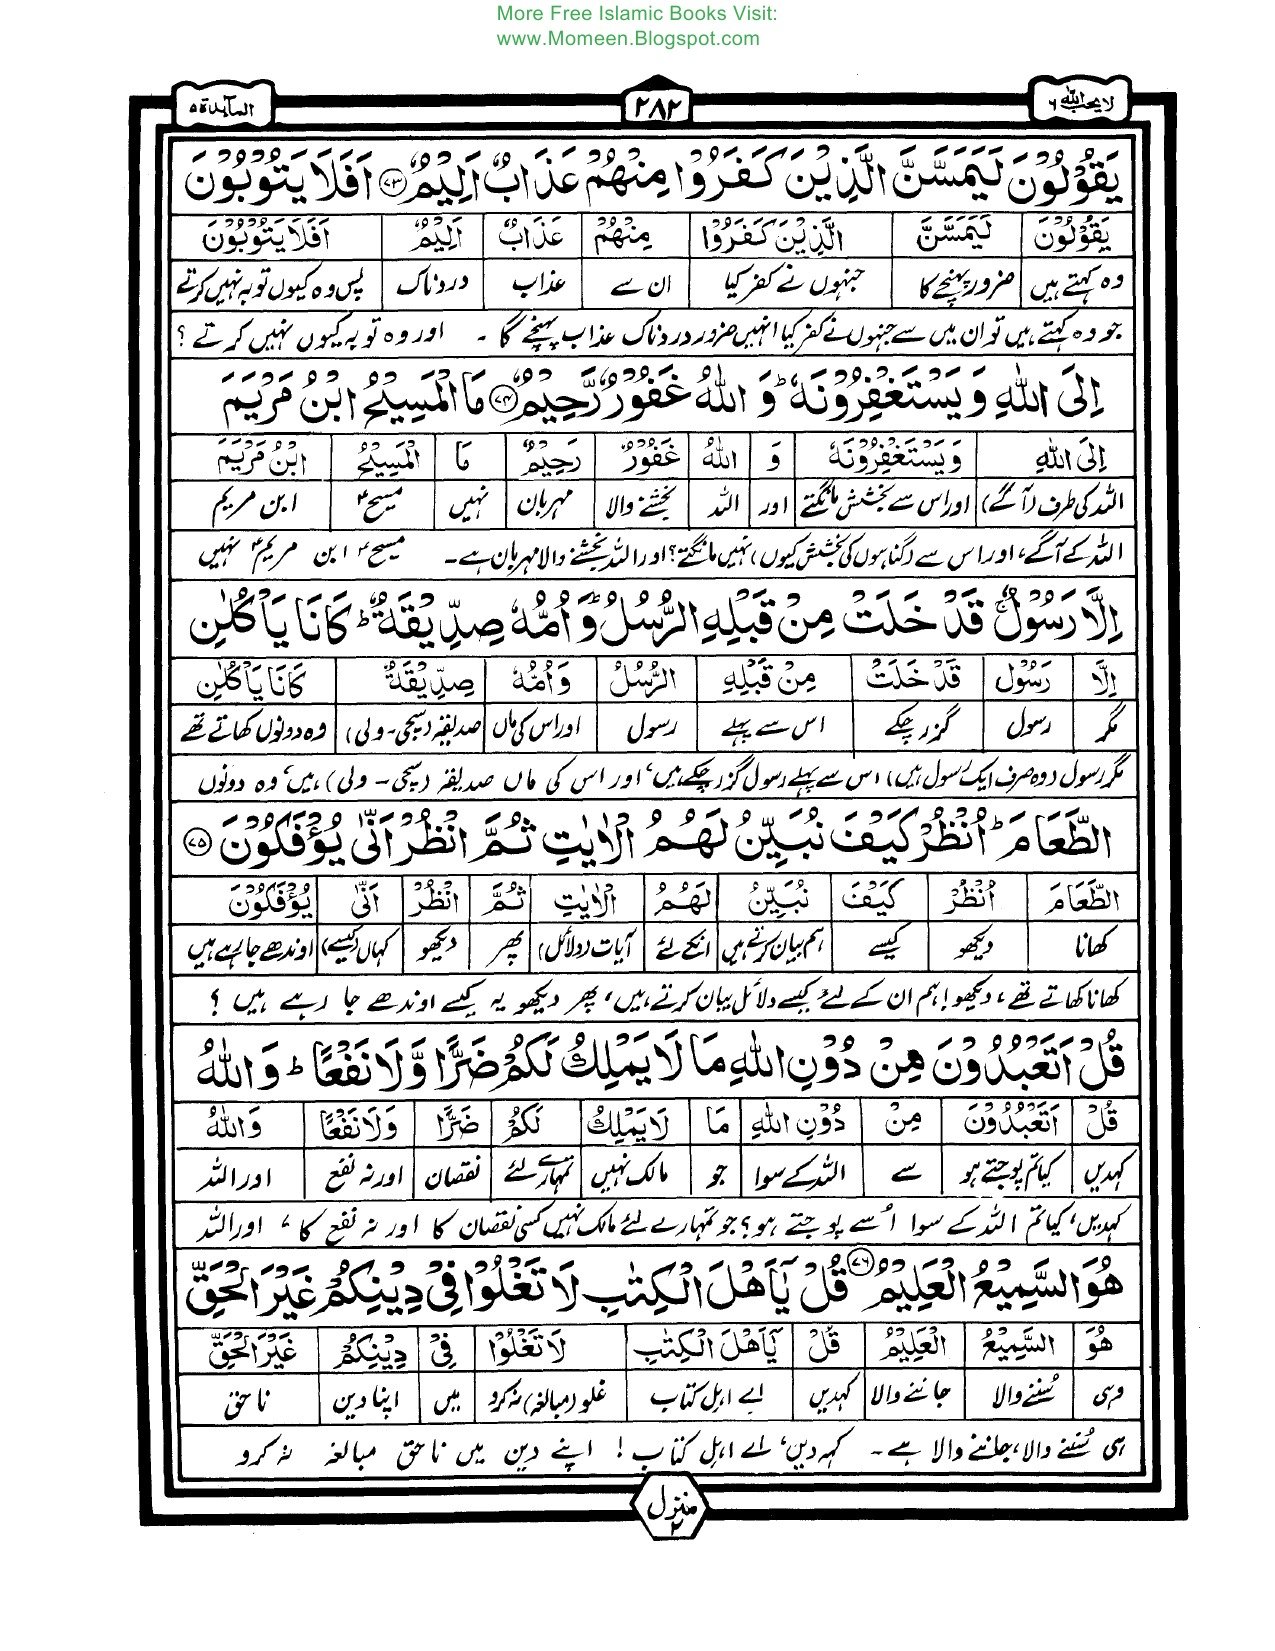 More Free Islamic Books Visit:
www.Momeen.Blogspot.com
لا یحب اللہ ۶
۲۸۲
المآیدة ۵
يَقُوْلُوْنَ لَيَمَسَّنَّ الَّذِيْنَ كَفَرُوْا مِنْهُمْ عَذَابٌ اَلِيْمٌ ﴿۷۳﴾ اَفَلَا يَتُوْبُوْنَ
يَقُوْلُوْنَ لَيَمَسَّنَّ الَّذِيْنَ كَفَرُوْا مِنْهُمْ عَذَابٌ اَلِيْمٌ اَفَلَا يَتُوْبُوْنَ
وہ کہتے ہیں ضرور پہنچے گا جنہوں نے کفر کیا ان سے عذاب دردناک پس وہ کیوں توبہ نہیں کرتے
جو وہ کہتے ہیں تو ان میں سے جنہوں نے کفر کیا انہیں ضرور دردناک عذاب پہنچے گا ۔ اور وہ توبہ کیوں نہیں کرتے ؟
اِلَى اللّٰهِ وَيَسْتَغْفِرُوْنَهٗ ؕ وَاللّٰهُ غَفُوْرٌ رَّحِيْمٌ ﴿۷۴﴾ مَا الْمَسِيْحُ ابْنُ مَرْيَمَ
اِلَى اللّٰهِ وَيَسْتَغْفِرُوْنَهٗ وَ اللّٰهُ غَفُوْرٌ رَحِيْمٌ مَا الْمَسِيْحُ ابْنُ مَرْيَمَ
اللہ کی طرف (آگے) اور اس سے بخشش مانگتے اور اللہ بخشنے والا مہربان نہیں مسیح؏ ابن مریم
اللہ کے آگے، اور اس سے (گناہوں کی بخشش کیوں) نہیں مانگتے؟ اور اللہ بخشنے والا مہربان ہے ۔ مسیح؏ ابن مریم؏ نہیں
اِلَّا رَسُوْلٌ ۚ قَدْ خَلَتْ مِنْ قَبْلِهِ الرُّسُلُ ؕ وَاُمُّهٗ صِدِّيْقَةٌ ؕ كَانَا يَاْكُلٰنِ
اِلَّا رَسُوْلٌ قَدْ خَلَتْ مِنْ قَبْلِهِ الرُّسُلُ وَاُمُّهٗ صِدِّيْقَةٌ كَانَا يَاْكُلٰنِ
مگر رسول گزر چکے اس سے پہلے رسول اور اس کی ماں صدیقہ (سچی - ولی) وہ دونوں کھاتے تھے
مگر رسول (وہ صرف ایک رسول ہیں) اس سے پہلے رسول گزر چکے ہیں، اور اس کی ماں صدیقہ (سچی - ولی) ہیں، وہ دونوں
الطَّعَامَ ؕ اُنْظُرْ كَيْفَ نُبَيِّنُ لَهُمُ الْاٰيٰتِ ثُمَّ انْظُرْ اَنّٰى يُؤْفَكُوْنَ ﴿۷۵﴾
الطَّعَامَ اُنْظُرْ كَيْفَ نُبَيِّنُ لَهُمُ الْاٰيٰتِ ثُمَّ انْظُرْ اَنّٰى يُؤْفَكُوْنَ
کھانا دیکھو کیسے ہم بیان کرتے ہیں انکے لئے آیات (دلائل) پھر دیکھو کہاں (کیسے) اوندھے جا رہے ہیں
کھانا کھاتے تھے، دیکھو! ہم ان کے لئے کیسے دلائل بیان کرتے ہیں، پھر دیکھو یہ کیسے اوندھے جا رہے ہیں ؟
قُلْ اَتَعْبُدُوْنَ مِنْ دُوْنِ اللّٰهِ مَا لَا يَمْلِكُ لَكُمْ ضَرًّا وَّلَا نَفْعًا ؕ وَاللّٰهُ
قُلْ اَتَعْبُدُوْنَ مِنْ دُوْنِ اللّٰهِ مَا لَا يَمْلِكُ لَكُمْ ضَرًّا وَلَا نَفْعًا وَاللّٰهُ
کہدیں کیا تم پوجتے ہو سے اللہ کے سوا جو مالک نہیں تمہارے لئے نقصان اور نہ نفع اور اللہ
کہدیں، کیا تم اللہ کے سوا اُسے پوجتے ہو؟ جو تمہارے لئے مالک نہیں کسی نقصان کا اور نہ نفع کا ، اور اللہ
هُوَ السَّمِيْعُ الْعَلِيْمُ ﴿۷۶﴾ قُلْ يٰۤاَهْلَ الْكِتٰبِ لَا تَغْلُوْا فِيْ دِيْنِكُمْ غَيْرَ الْحَقِّ
هُوَ السَّمِيْعُ الْعَلِيْمُ قُلْ يٰۤاَهْلَ الْكِتٰبِ لَا تَغْلُوْا فِيْ دِيْنِكُمْ غَيْرَ الْحَقِّ
وہی سننے والا جاننے والا کہدیں اے اہل کتاب غلو (مبالغہ) نہ کرو میں اپنا دین ناحق
ہی سُننے والا، جاننے والا ہے ۔ کہہ دیں، اے اہل کتاب ! اپنے دین میں ناحق مبالغہ نہ کرو
منزل ۲